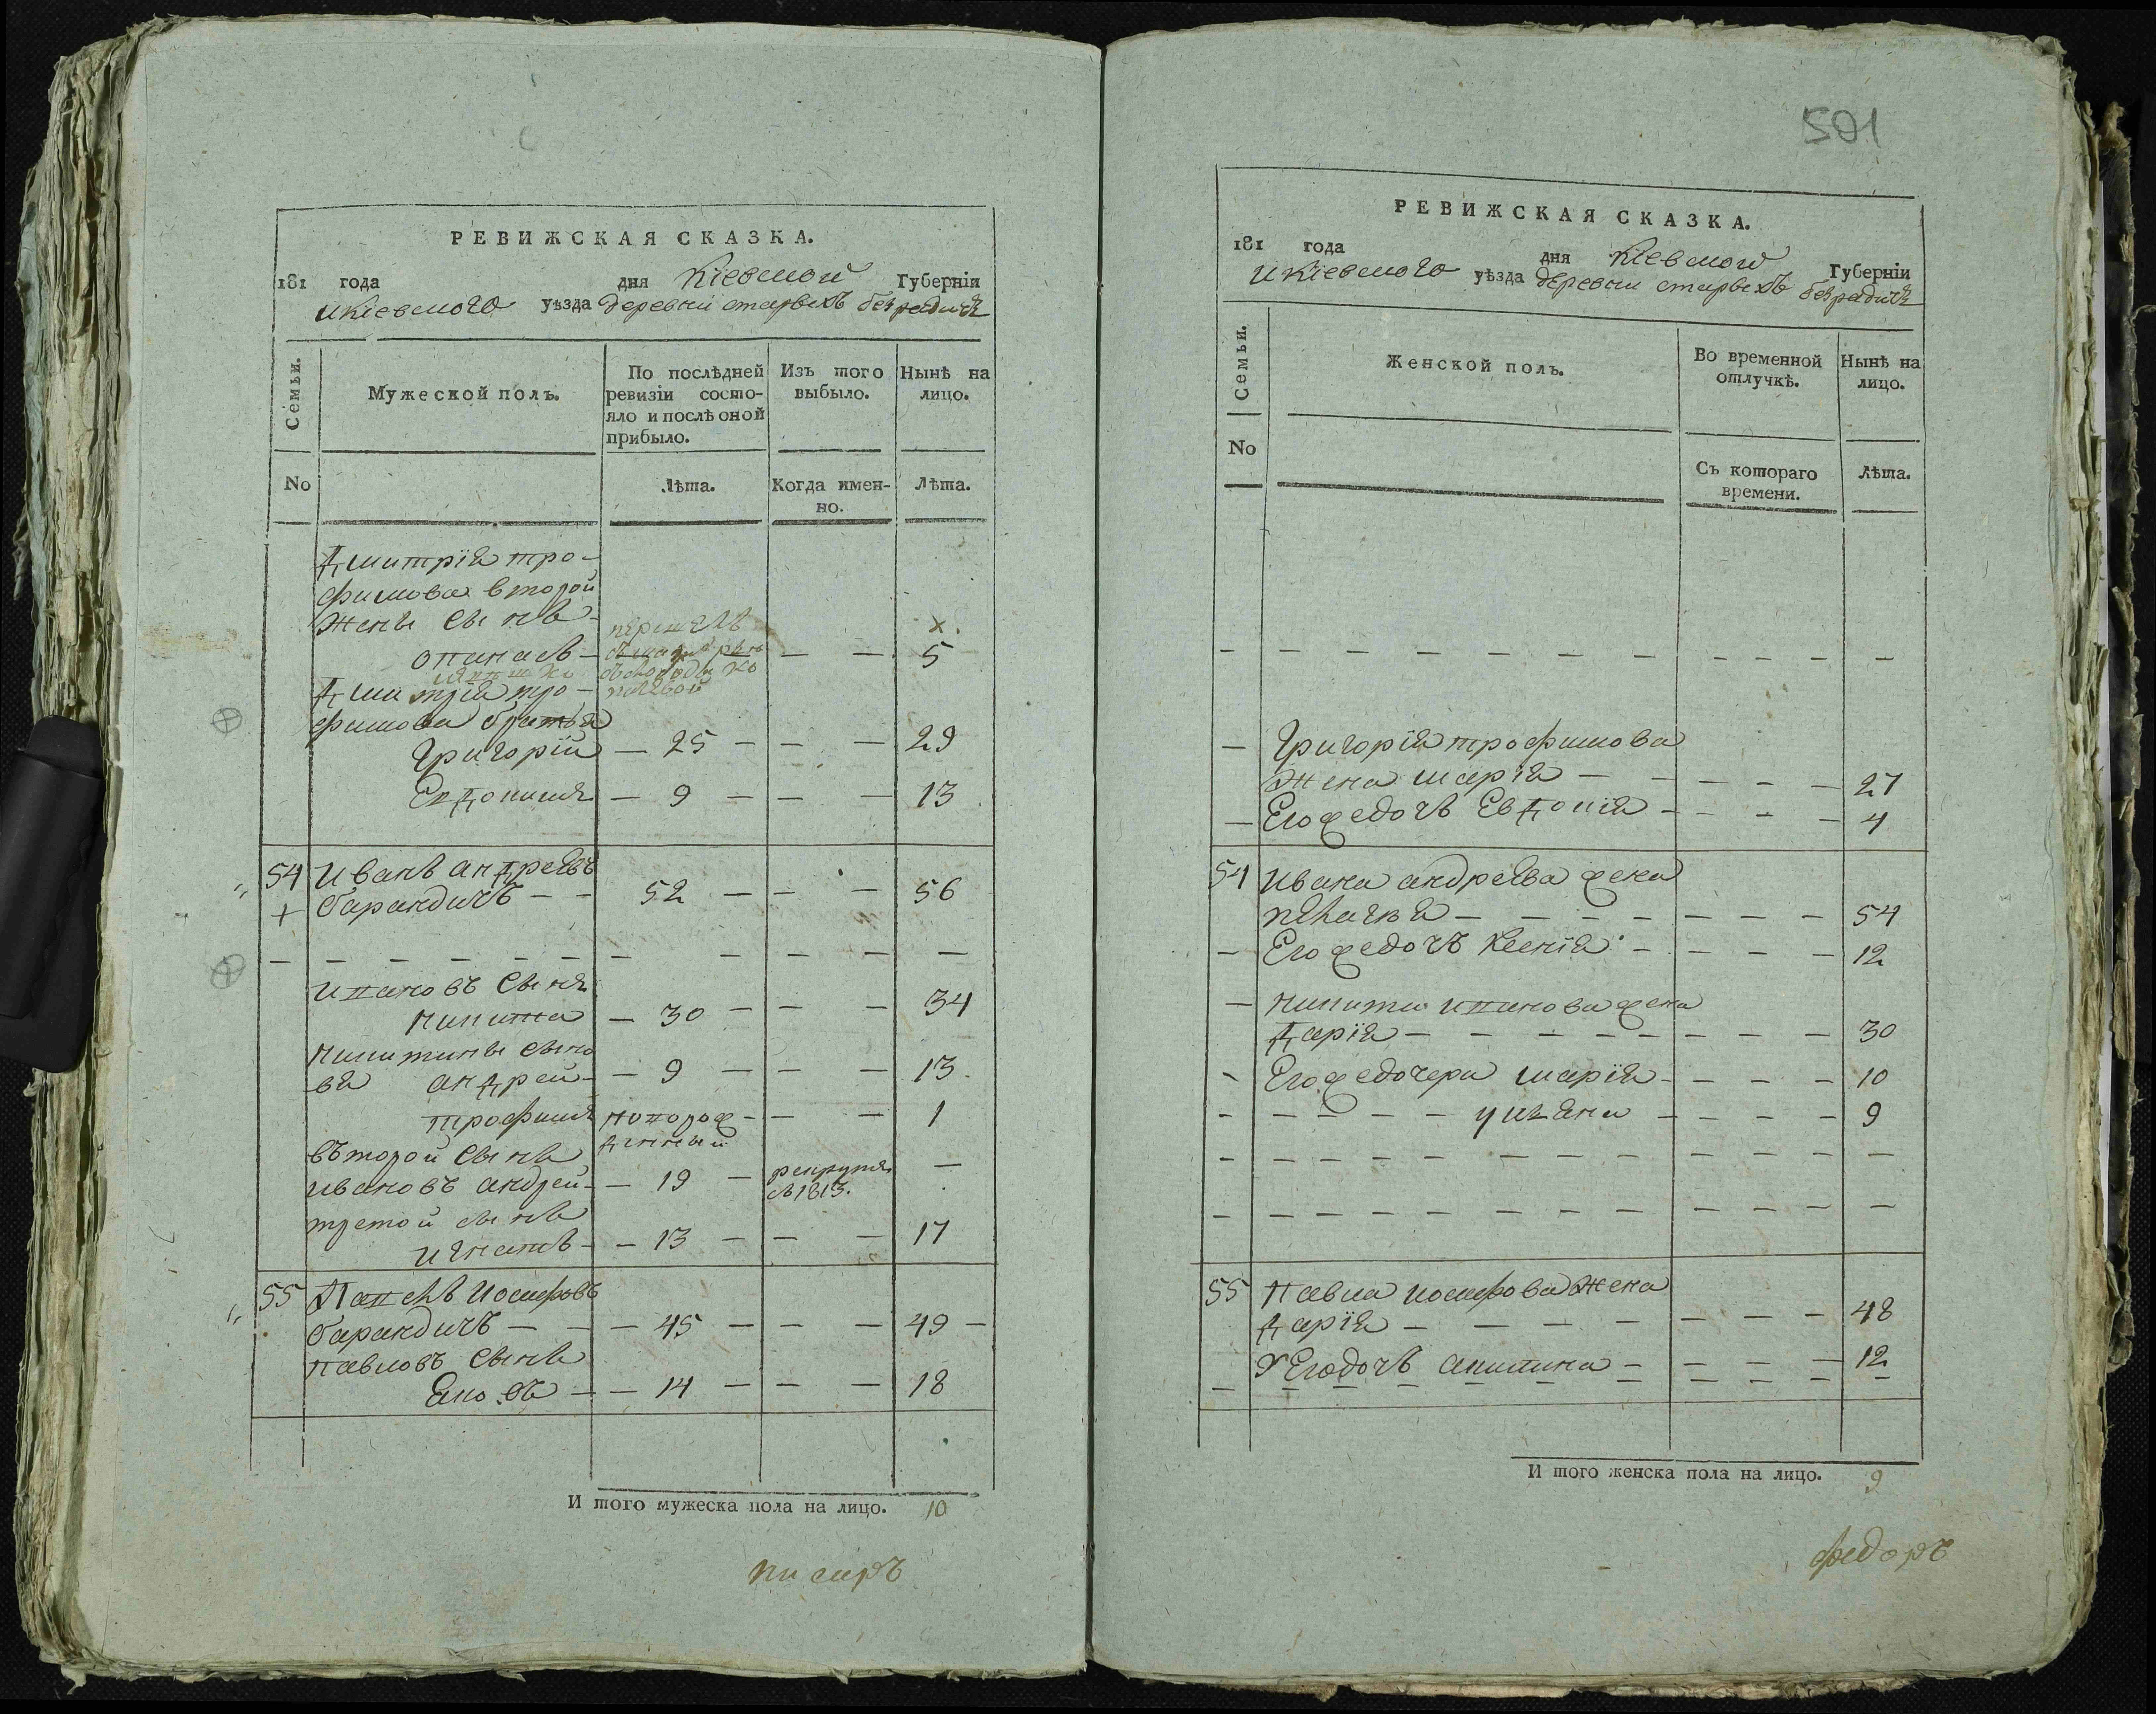 РЕВИЖСКАЯ СКАЗКА.
181 года дня Кіевской Губерніи
и Кіевского уѣзда деревни старыхъ безрадичъ
Семьи.
Мужеской полъ.
По послѣдней ревизіи состо-
яло и послѣ оной
прибыло.
Изъ того
выбыло.
Нынѣ на
лицо.
No
Лѣта.
Когда имен-
но.
Лѣта.
Дмитрія тро-
фимова второй
жены сынъ
опанасъ — — — 5
Дмитрія тро-
фимова братья
Григорій — 25 — — — 29
Евдокимъ — 9 — — — 13
54 Иванъ андреевъ
барандичъ — — 52 — — — 56
Ивановъ сынъ
никита — 30 — — — 34
никитины сыно
вя андрей — 9 — — — 13
трофимъ новорож — — — 1
денный
въторой сынъ
ивановъ андрей — 19 — рекрутъ —
съ 1813.
третой сынъ
игнатъ — 13 — — — 17
55 Павелъ иосифовъ
барандичъ — — — 45 — — — 49 —
павловъ сынъ
яковъ — — 14 — — — 18
И того мужеска пола на лицо. 10
писаръ
501
РЕВИЖСКАЯ СКАЗКА.
181 года дня Кіевской Губерніи
и Кіевского уѣзда деревни старыхъ безрадичъ
Семьи.
Женской полъ.
Во временной
отлучкѣ.
Нынѣ на
лицо.
No
Съ котораго
времени.
Лѣта.
— Григорія трофимова
жена марія — — — — — 27
— Его же дочъ Евдокія — — — — 4
54 Ивана андреева жена
пелагея — — — — — — — — 54
— Его же дочъ ксенія — — — — 12
— никиты иванова жена
дарія — — — — — — — — 30
— Его же дочери марія — — — — 10
— — — — — — ульяна — — — — 9
55 павла иосифова жена
дарія — — — — — — — — 48
Его дочъ акилина — — — — 12
И того женска пола на лицо. 9
федоръ